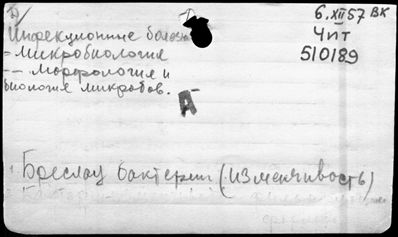 6.XII 57 ВК
Инфекционные болезни
Чит
510189
- Микробиология
- - Морфология и
биология микробов.
А
Бреслау бактерии (изменчивость)